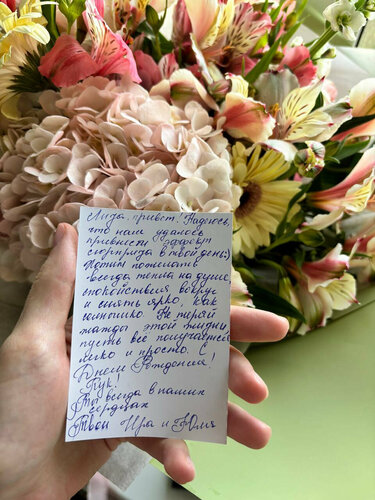 Лида, привет. Надеюсь,
что нам удалось
привнести эффект
сюрприза в твой день)
Хотим пожелать
всегда тепла на душе,
спокойствия вокруг
и сиять ярко, как
солнышко. Не теряй
жажды этой жизни,
пусть всё получается
легко и просто. С
Днем Рождения!
Ты всегда в наших
сердцах
Твои Ира и Юля